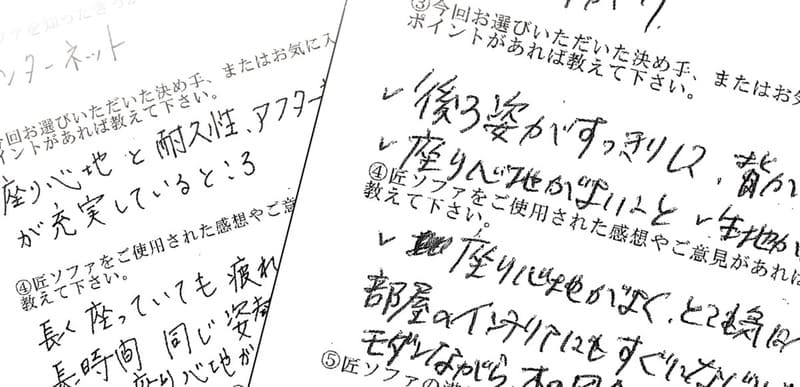 ファを知ったきっか
ンターネット
今回お選びいただいた決め手、またはお気に入
イントがあれば教えて下さい。
座り心地と耐久性、アフター
が充実しているところ
④匠ソファをご使用された感想やご意
教えて下さい。
長く座っていても疲れ
長時間同じ姿勢
座り心地が
③今回お選びいただいた決め手、またはお気
ポイントがあれば教えて下さい。
✓後ろ姿がすっきりして、背が
✓座り心地がよいこと ✓生地が
④匠ソファをご使用された感想やご意見があれば
教えて下さい。
✓座り心地がよく、とても気に
部屋のインテリアにもすぐ
モダンながら、
⑤匠ソファの